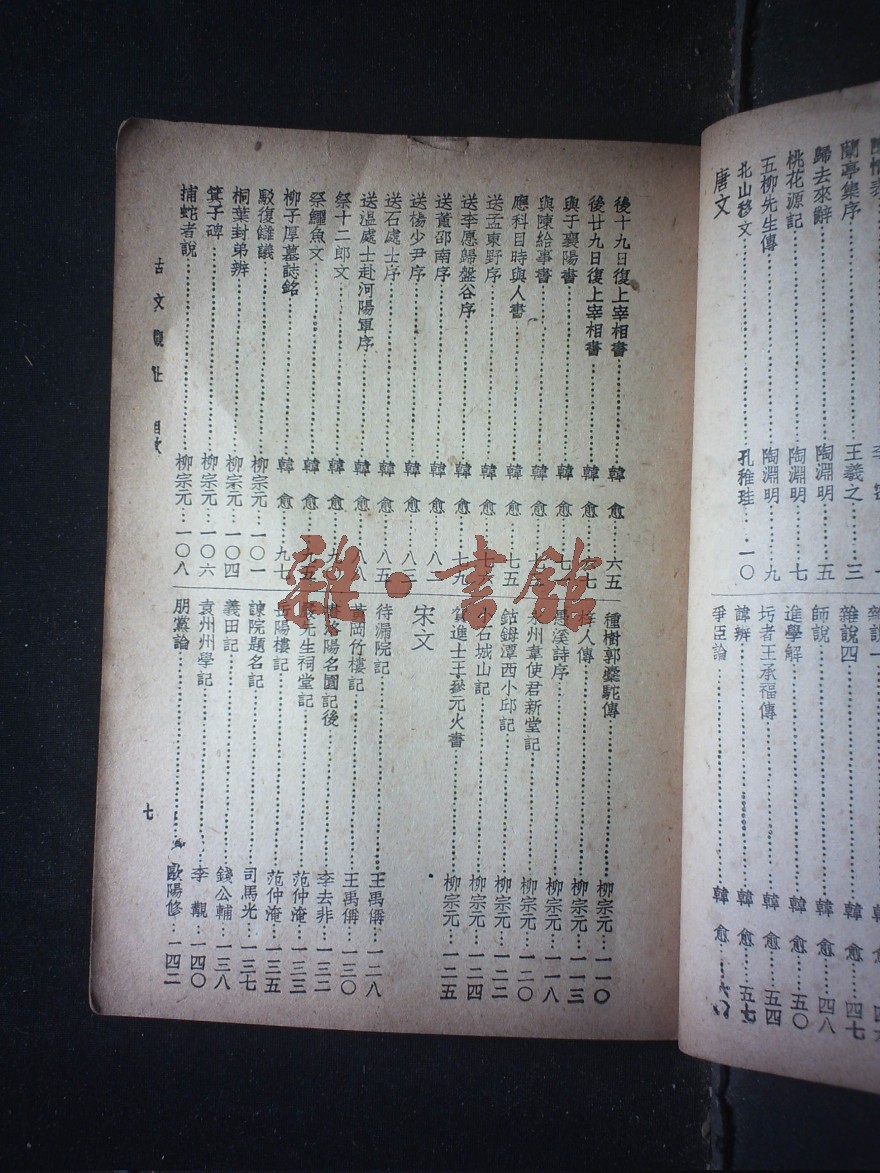 蘭亭集序 王羲之 三
歸去來辭 陶淵明 五
桃花源記 陶淵明 七
五柳先生傳 陶淵明 九
北山移文 孔稚珪 一〇
唐文
雜說四 韓愈 四七
師說 韓愈 四八
進學解 韓愈 五〇
圬者王承福傳 韓愈 五四
諱辨 韓愈 五七
爭臣論 韓愈
後十九日復上宰相書 韓愈 六五
後廿九日復上宰相書 韓愈
與于襄陽書 韓愈
與陳給事書 韓愈
應科目時與人書 韓愈 七五
送孟東野序 韓愈
送李愿歸盤谷序 韓愈 七九
送董邵南序 韓愈 八二
送楊少尹序 韓愈 八三
送石處士序 韓愈 八五
送溫處士赴河陽軍序 韓愈 八八
祭十二郎文 韓愈
祭鱷魚文 韓愈
柳子厚墓誌銘 韓愈 九七
駁復讎議 柳宗元 一〇一
桐葉封弟辨 柳宗元 一〇四
箕子碑 柳宗元 一〇六
捕蛇者說 柳宗元 一〇八
種樹郭橐駝傳 柳宗元 一一〇
梓人傳 柳宗元 一一三
愚溪詩序 柳宗元 一一八
永州韋使君新堂記 柳宗元 一二〇
鈷鉧潭西小邱記 柳宗元 一二二
小石城山記 柳宗元 一二四
賀進士王參元火書 柳宗元 一二五
宋文
待漏院記 王禹偁 一二八
黃岡竹樓記 王禹偁 一三〇
書洛陽名園記後 李去非 一三二
嚴先生祠堂記 范仲淹 一三三
岳陽樓記 范仲淹 一三五
諫院題名記 司馬光 一三七
義田記 錢公輔 一三八
袁州州學記 李覯 一四〇
朋黨論 歐陽修 一四二
古文觀止 目次
七
雜·書館